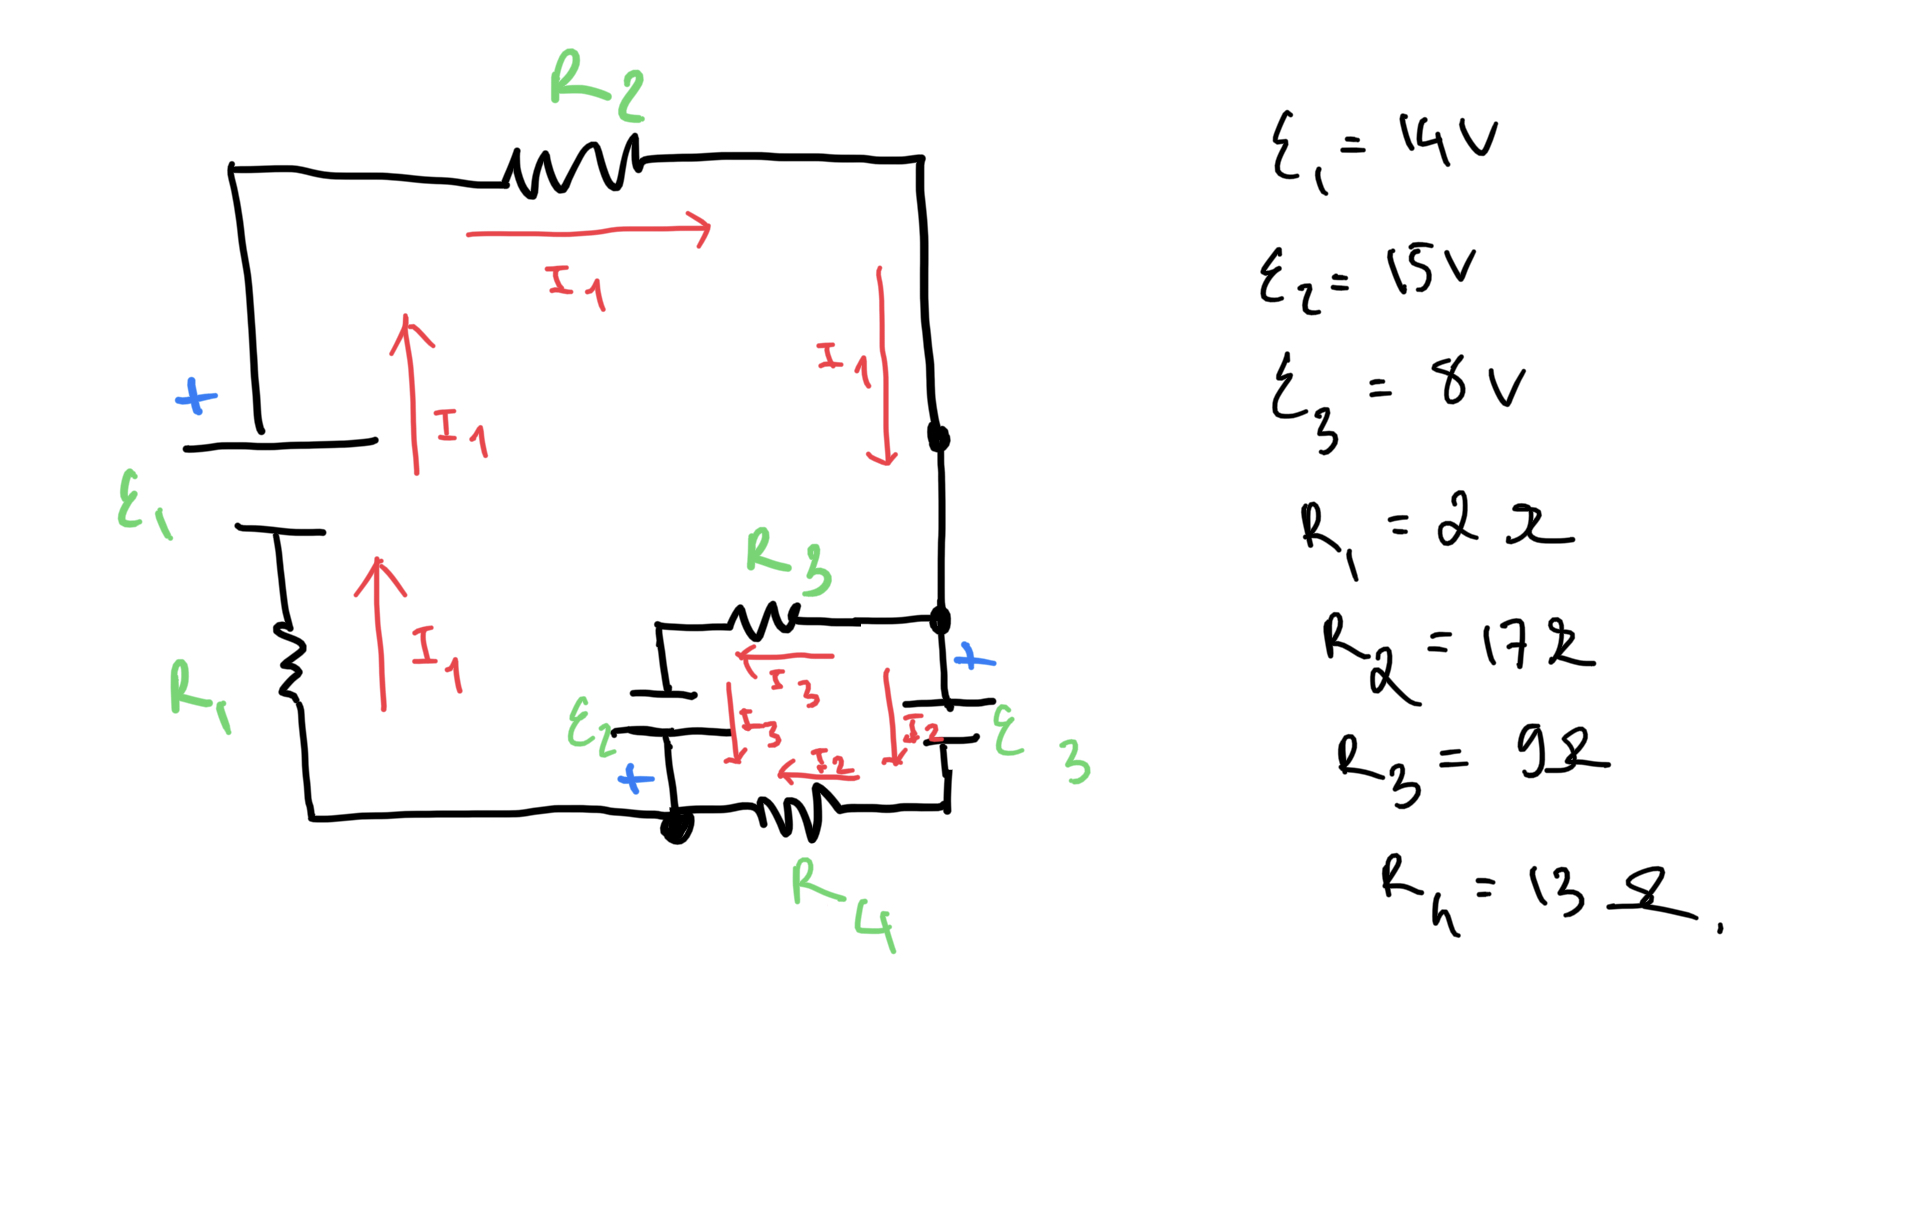 R2
I1
I1
+
I1
ε1
R3
+
I1
R1
I3
ε2
I3
I2
ε3
+
I2
R4
ε1 = 14V
ε2 = 15V
ε3 = 8V
R1 = 2Ω
R2 = 17Ω
R3 = 9Ω
R4 = 13Ω.